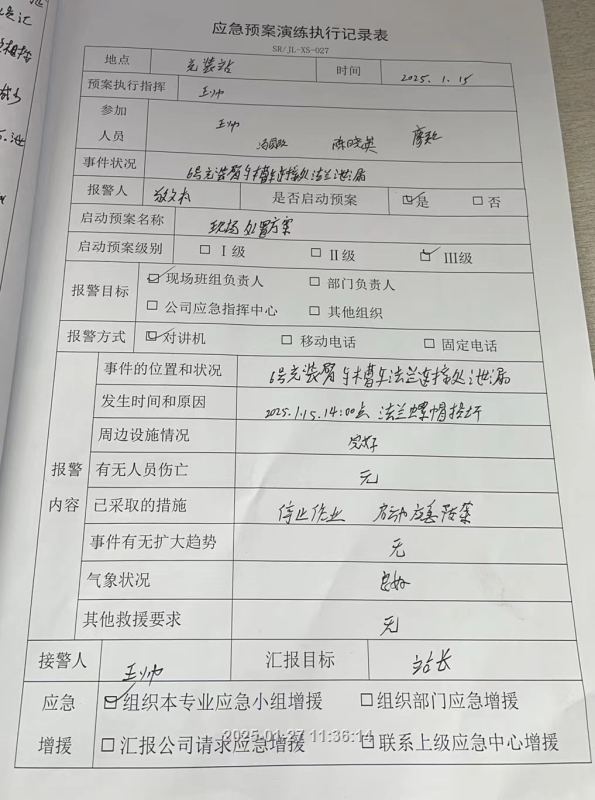 应急预案演练执行记录表
SR/JL-XS-027
地点 充装站 时间 2025.1.15
预案执行指挥 王帅
参加人员 王帅
陈晓英
事件状况 6号充装臂与槽车连接处法兰泄漏
报警人 是否启动预案 ☑是 □否
启动预案名称 现场处置方案
启动预案级别 □Ⅰ级 □Ⅱ级 ☑Ⅲ级
报警目标 ☑现场班组负责人 □部门负责人
□公司应急指挥中心 □其他组织
报警方式 ☑对讲机 □移动电话 □固定电话
报警内容
事件的位置和状况 6号充装臂与槽车法兰连接处泄漏
发生时间和原因 2025.1.15.14:00点 法兰螺帽损坏
周边设施情况 完好
有无人员伤亡 无
已采取的措施 停止作业 启动应急预案
事件有无扩大趋势 无
气象状况 良好
其他救援要求 无
接警人 王帅 汇报目标 站长
应急增援 ☑组织本专业应急小组增援 □组织部门应急增援
□汇报公司请求应急增援 □联系上级应急中心增援
2025-01-27 11:36:14